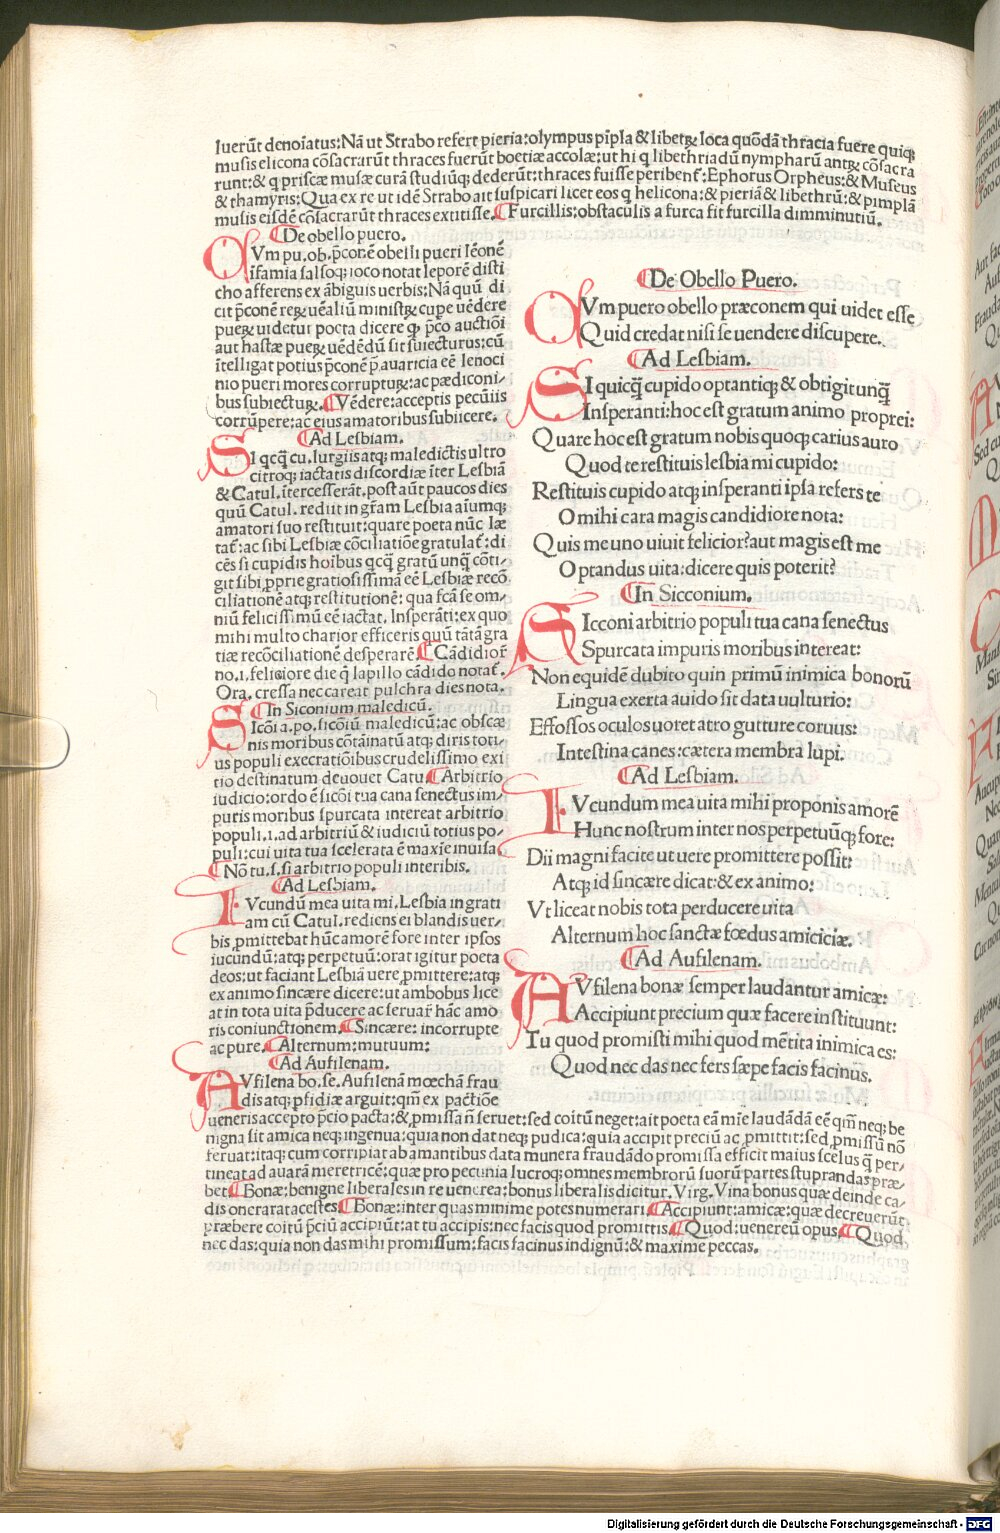 luerūt denoīatus: Nā ut Strabo refert pieria: olympus pīpla & libetꝝ loca quōdā thracia fuere quiqꝫ
musis elicona cōsacrarūt thraces fuerūt boetiæ accolæ: ut hi q libethriadū nympharū antꝝ cōsacra
runt: & q priscæ musæ curā studiūqꝫ dederūt: thraces fuisse peribent̄: Ephorus Orpheus: & Museus
& thamyris: Qua ex re ut idē Strabo ait suspicari licet eos q helicona: & pieriā & libethrū: & pimplā
musis eisdē cōsacrarūt thraces extitisse. ¶Furcillis: obstaculis a furca fit furcilla dimminutiū.
¶De obello puero.
QVm pu. ob. p̄conē obelli pueri lēonē
ifamia salsoqꝫ ioco notat leporē disti
cho afferens ex ābiguis uerbis: Nā quū di
cit p̄conē reꝝ uēaliū ministꝝ cupe uēdere
pueꝝ uidetur poeta dicere qꝫ p̄co auctiōi
aut hastæ pueꝝ uēdēdū sit suiecturus: cū
ītelligat potius p̄conē p̄ auaricia eē lenoci
nio pueri mores corrupturꝝ: ac pædiconi/
bus subiecturꝝ. ¶Vēdere: acceptis pecūiis
corrūpere: ac eius amatoribus subiicere.
¶Ad Lesbiam.
SI qcq̄ cu. Iurgiis atqꝫ maledictis ultro
citroqꝫ iactatis discordiæ īter Lesbiā
& Catul. ītercesserāt. post aūt paucos dies
quū Catul. rediit in gr̄am Lesbia aīumqꝫ
amatori suo restituit: quare poeta nūc læ
tat̄: ac sibi Lesbiæ cōciliatiōe gratulat̄: di
cēs si cupidis hoībus qcq̄ gratū unq̄ cōti/
git sibi ꝓprie gratiosissimā eē Lesbiæ recō
ciliationē atqꝫ restitutionē: qua fcā se om/
niū felicissimū eē iactat. Insperāti: ex quo
mihi multo charior efficeris quū tātā gra
tiæ recōciliationē desperarē. ¶Cādidior̄
no. i. feliciore die q̄ lapillo cādido notat̄.
Ora. cressa nec careat pulchra dies nota.
¶In Siconium maledicū.
SIcōi a. po. sicōiū maledicū: ac obscæ
nis moribus cōtāinatū atqꝫ diris toti/
us populi execratiōibus crudelissimo exi
tio destinatum deuouet Catu. ¶Arbitrio
iudicio: ordo ē sicōi tua cana senectus im/
puris moribus spurcata intereat arbitrio
populi. i. ad arbitriū & iudiciū totius po/
puli: cui uita tua scelerata ē maxīe inuisa
¶Nō tu. s. si arbitrio populi interibis.
¶Ad Lesbiam.
IVcundū mea uita mi. Lesbia in grati
am cū Catul. rediens ei blandis uer/
bis ꝓmittebat hūc amorē fore inter ipsos
iucundū: atqꝫ perpetuū: orat igitur poeta
deos: ut faciant Lesbiā uere ꝓmittere: atqꝫ
ex animo sincære dicere: ut ambobus lice
at in tota uita p̄ducere ac seruar̄ hāc amo
ris coniunctionem. ¶Sincære: incorrupte
ac pure. ¶Alternum: mutuum:
¶Ad Aufilenam.
AVfilena bo. se. Aufilenā mœcha frau
dis atqꝫ pfidiæ arguit: qm̄ ex pactiōe
ueneris accepto p̄cio pacta: & ꝓmissa n̄ seruet: sed coitū neget: ait poeta eā mīe laudādā eē qm̄ neqꝫ be
nigna sit amica neqꝫ ingenua: quia non dat neqꝫ pudica: quia accipit preciū ac ꝓmittit: sed ꝓmissū nō
seruat: itaqꝫ cum corripiat ab amantibus data munera fraudādo promissa efficit maius scelus q̄ per/
tineat ad auarā meretricē: quæ pro pecunia lucroqꝫ omnes membrorū suorū partes stuprandas præ/
bet ¶Bonæ: benigne liberales in re uenerea: bonus liberalis dicitur. Virg. Vina bonus quæ deinde ca/
dis onerarat acestes. ¶Bonæ: inter quas minime potes numerari. ¶Accipiunt: amicæ: quæ decreuerūt
præbere coitū p̄ciū accipiūt: at tu accipis: nec facis quod promittis. ¶Quod: uenereū opus. ¶Quod
nec das: quia non das mihi promissum: facis facinus indignū: & maxime peccas.
¶De Obello Puero.
QVm puero obello præconem qui uidet esse
Quid credat nisi se uendere discupere.
¶Ad Lesbiam.
SI quicq̄ cupido optantiqꝫ & obtigit unq̄
Insperanti: hoc est gratum animo proprei:
Quare hoc est gratum nobis quoqꝫ carius auro
Quod te restituis lesbia mi cupido:
Restituis cupido atqꝫ insperanti ipsa refers te
O mihi cara magis candidiore nota:
Quis me uno uiuit felicior? aut magis est me
Optandus uita: dicere quis poterit?
¶In Sicconium.
SIcconi arbitrio populi tua cana senectus
Spurcata impuris moribus intereat:
Non equidē dubito quin primū inimica bonorū
Lingua exerta auido sit data uulturio:
Effossos oculos uoret atro gutture coruus:
Intestina canes: cætera membra lupi.
¶Ad Lesbiam.
IVcundum mea uita mihi proponis amorē
Hunc nostrum inter nos perpetuūqꝫ fore:
Dii magni facite ut uere promittere possit:
Atqꝫ id sincære dicat: & ex animo:
Vt liceat nobis tota perducere uita
Alternum hoc sanctæ fœdus amiciciæ.
¶Ad Aufilenam.
AVfilena bonæ semper laudantur amicæ:
Accipiunt precium quæ facere instituunt:
Tu quod promisti mihi quod mētita inimica es:
Quod nec das nec fers sæpe facis facinus.
Digitalisierung gefördert durch die Deutsche Forschungsgemeinschaft - DFG